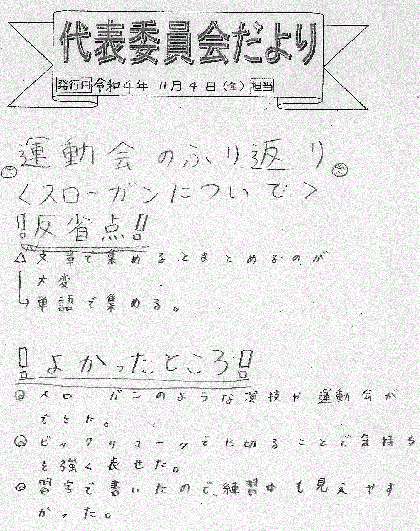 代表委員会だより
発行日 令和4年 11月4日(金) 担当
運動会のふり返り
<スローガンについて>
!!反省点!!
△文章で集めるとまとめるのが
大変
→単語で集める。
!!よかったところ!!
スローガンのような演技や運動会が
できた。
ビックリマークで区切ることで気持ち
を強く表せた。
習字で書いたので、練習中も見えやす
かった。